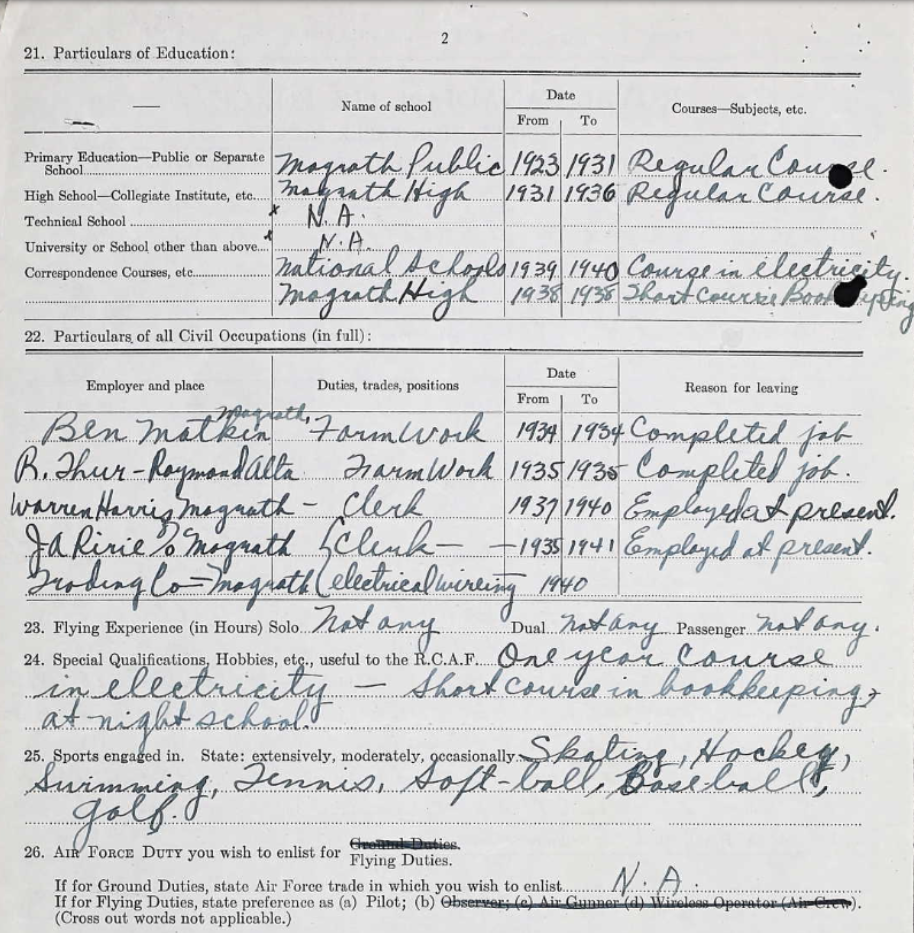 2
21. Particulars of Education:
— Name of school Date Courses—Subjects, etc.
From To
Primary Education—Public or Separate School Magrath Public 1923 1931 Regular Course.
High School—Collegiate Institute, etc. Magrath High 1931 1936 Regular Course.
Technical School x N.A.
University or School other than above x N.A.
Correspondence Courses, etc. National Schools 1939 1940 Course in electricity.
Magrath High 1938 1938 Short course
22. Particulars of all Civil Occupations (in full):
Employer and place Duties, trades, positions Date Reason for leaving
From To
Ben Matkin Magrath, Farm Work 1934 1934 Completed job
R. Thur - Raymond Alta Farm Work 1935 1935 Completed job.
Warren Harris Magrath - Clerk 1937 1940 Employed at present.
J A Ririe Magrath Clerk — — 1935 1941 Employed at present.
Trading Co - Magrath electrical wireing 1940
23. Flying Experience (in Hours) Solo Not any Dual not any Passenger not any.
24. Special Qualifications, Hobbies, etc., useful to the R.C.A.F. One year course
in electricity — Short course in bookkeeping,
at night school.
25. Sports engaged in. State: extensively, moderately, occasionally. Skating, Hockey,
Swimming, Tennis, Soft-ball, Baseball,
golf.
26. AIR FORCE DUTY you wish to enlist for Ground Duties.
Flying Duties.
If for Ground Duties, state Air Force trade in which you wish to enlist N.A.
If for Flying Duties, state preference as (a) Pilot; (b) Observer; (c) Air Gunner (d) Wireless Operator (Air Crew).
(Cross out words not applicable.)